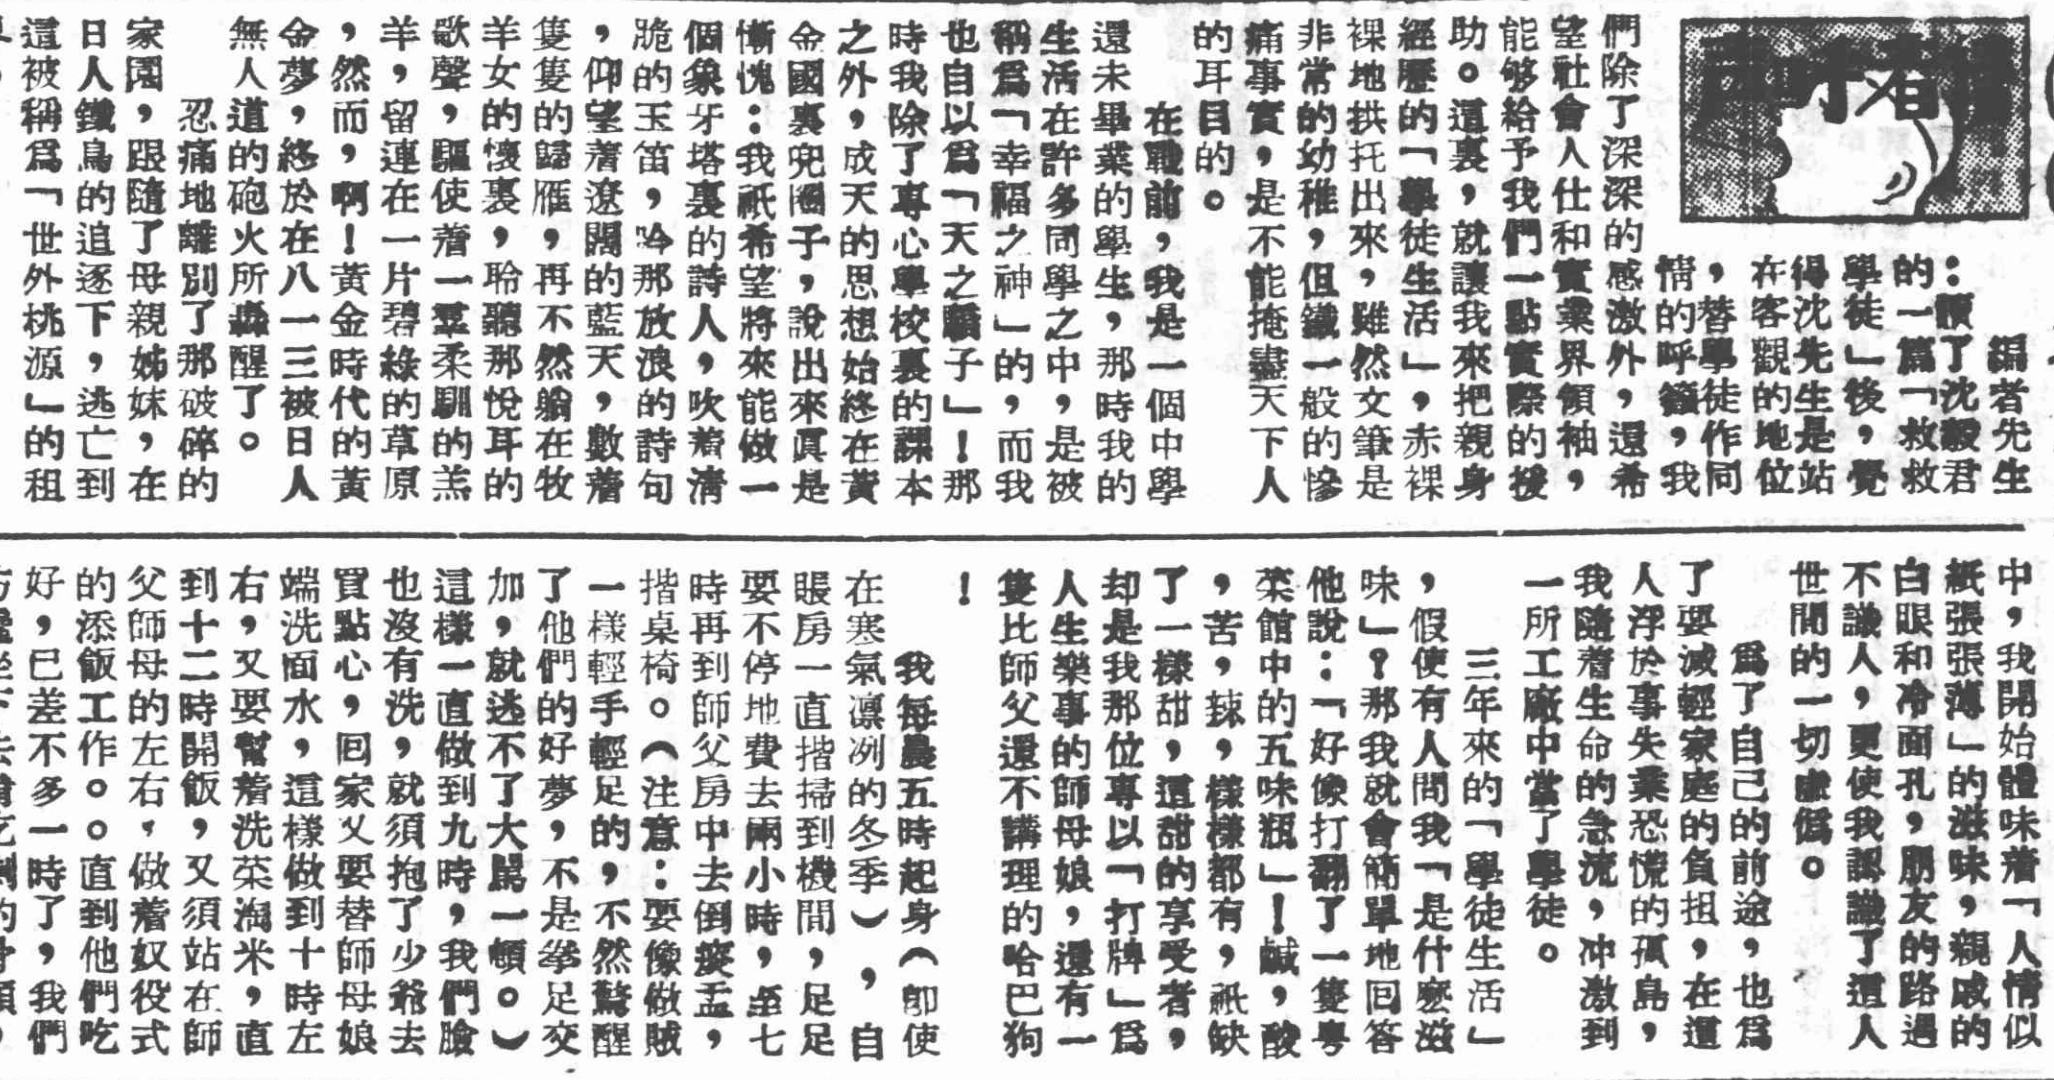 讀者呼聲
編者先生
：讀了沈毅君
的一篇「救救
學徒」後，覺
得沈先生是站
在客觀的地位
，替學徒作同
情的呼籲，我
們除了深深的感激外，還希
望社會人仕和實業界領袖，
能够給予我們一點實際的援
助。這裏，就讓我來把親身
經歷的「學徒生活」，赤裸
裸地拱托出來，雖然文筆是
非常的幼稚，但鐵一般的慘
痛事實，是不能掩盡天下人
的耳目的。
在戰前，我是一個中學
還未畢業的學生，那時我的
生活在許多同學之中，是被
稱爲「幸福之神」的，而我
也自以爲「天之驕子」！那
時我除了專心學校裏的課本
之外，成天的思想始終在黃
金國裏兜圈子，說出來眞是
慚愧：我祇希望將來能做一
個象牙塔裏的詩人，吹着淸
脆的玉笛，吟那放浪的詩句
，仰望着遼闊的藍天，數着
隻隻的歸雁，再不然躺在牧
羊女的懷裏，聆聽那悅耳的
歌聲，驅使着一羣柔馴的羔
羊，留連在一片碧綠的草原
，然而，啊！黃金時代的黃
金夢，終於在八一三被日人
無人道的砲火所轟醒了。
忍痛地離別了那破碎的
家園，跟隨了母親姊妹，在
日人鐵鳥的追逐下，逃亡到
這被稱爲「世外桃源」的租
中，我開始體味着「人情似
紙張張薄」的滋味，親戚的
白眼和冷面孔，朋友的路遇
不識人，更使我認識了這人
世間的一切虛僞。
爲了自己的前途，也爲
了要減輕家庭的負担，在這
人浮於事失業恐慌的孤島，
我隨着生命的急流，冲激到
一所工廠中當了學徒。
三年來的「學徒生活」
，假使有人問我「是什麽滋
味」？那我就會簡單地回答
他說：「好像打翻了一隻粵
菜館中的五味瓶」！鹹，酸
，苦，辣，樣樣都有，祇缺
了一樣甜，這甜的享受者，
却是我那位專以「打牌」爲
人生樂事的師母娘，還有一
隻比師父還不講理的哈巴狗
！
我每晨五時起身（卽使
在寒氣凛冽的冬季），自
賬房一直揩掃到機間，足足
要不停地費去兩小時，至七
時再到師父房中去倒痰盂，
揩桌椅。（注意：要像做賊
一樣輕手輕足的，不然驚醒
了他們的好夢，不是拳足交
加，就逃不了大駡一頓。）
這樣一直做到九時，我們臉
也沒有洗，就須抱了少爺去
買點心，回家又要替師母娘
端洗面水，這樣做到十時左
右，又要幫着洗菜淘米，直
到十二時開飯，又須站在師
父師母的左右，做着奴役式
的添飯工作。。直到他們吃
好，已差不多一時了，我們